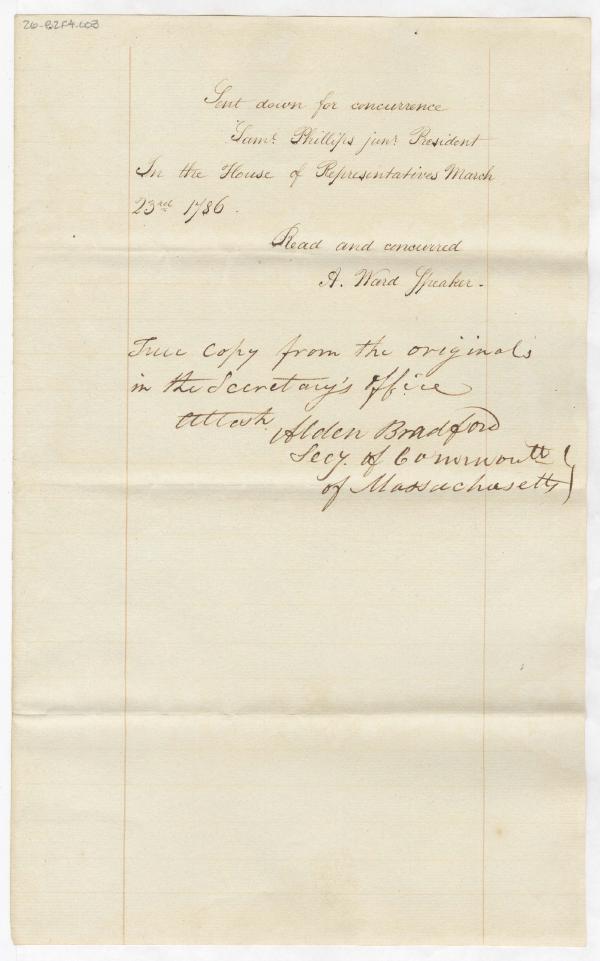 26-B2F4-003
Sent down for concurrence
Samˡ. Phillips junʳ. President
In the House of Representatives March
23ʳᵈ 1786.
Read and concurred
A. Ward Speaker.
True Copy from the originals
in the Secretary's office
Attest
Alden Bradford
Secy. of Commonwth
of Massachusetts